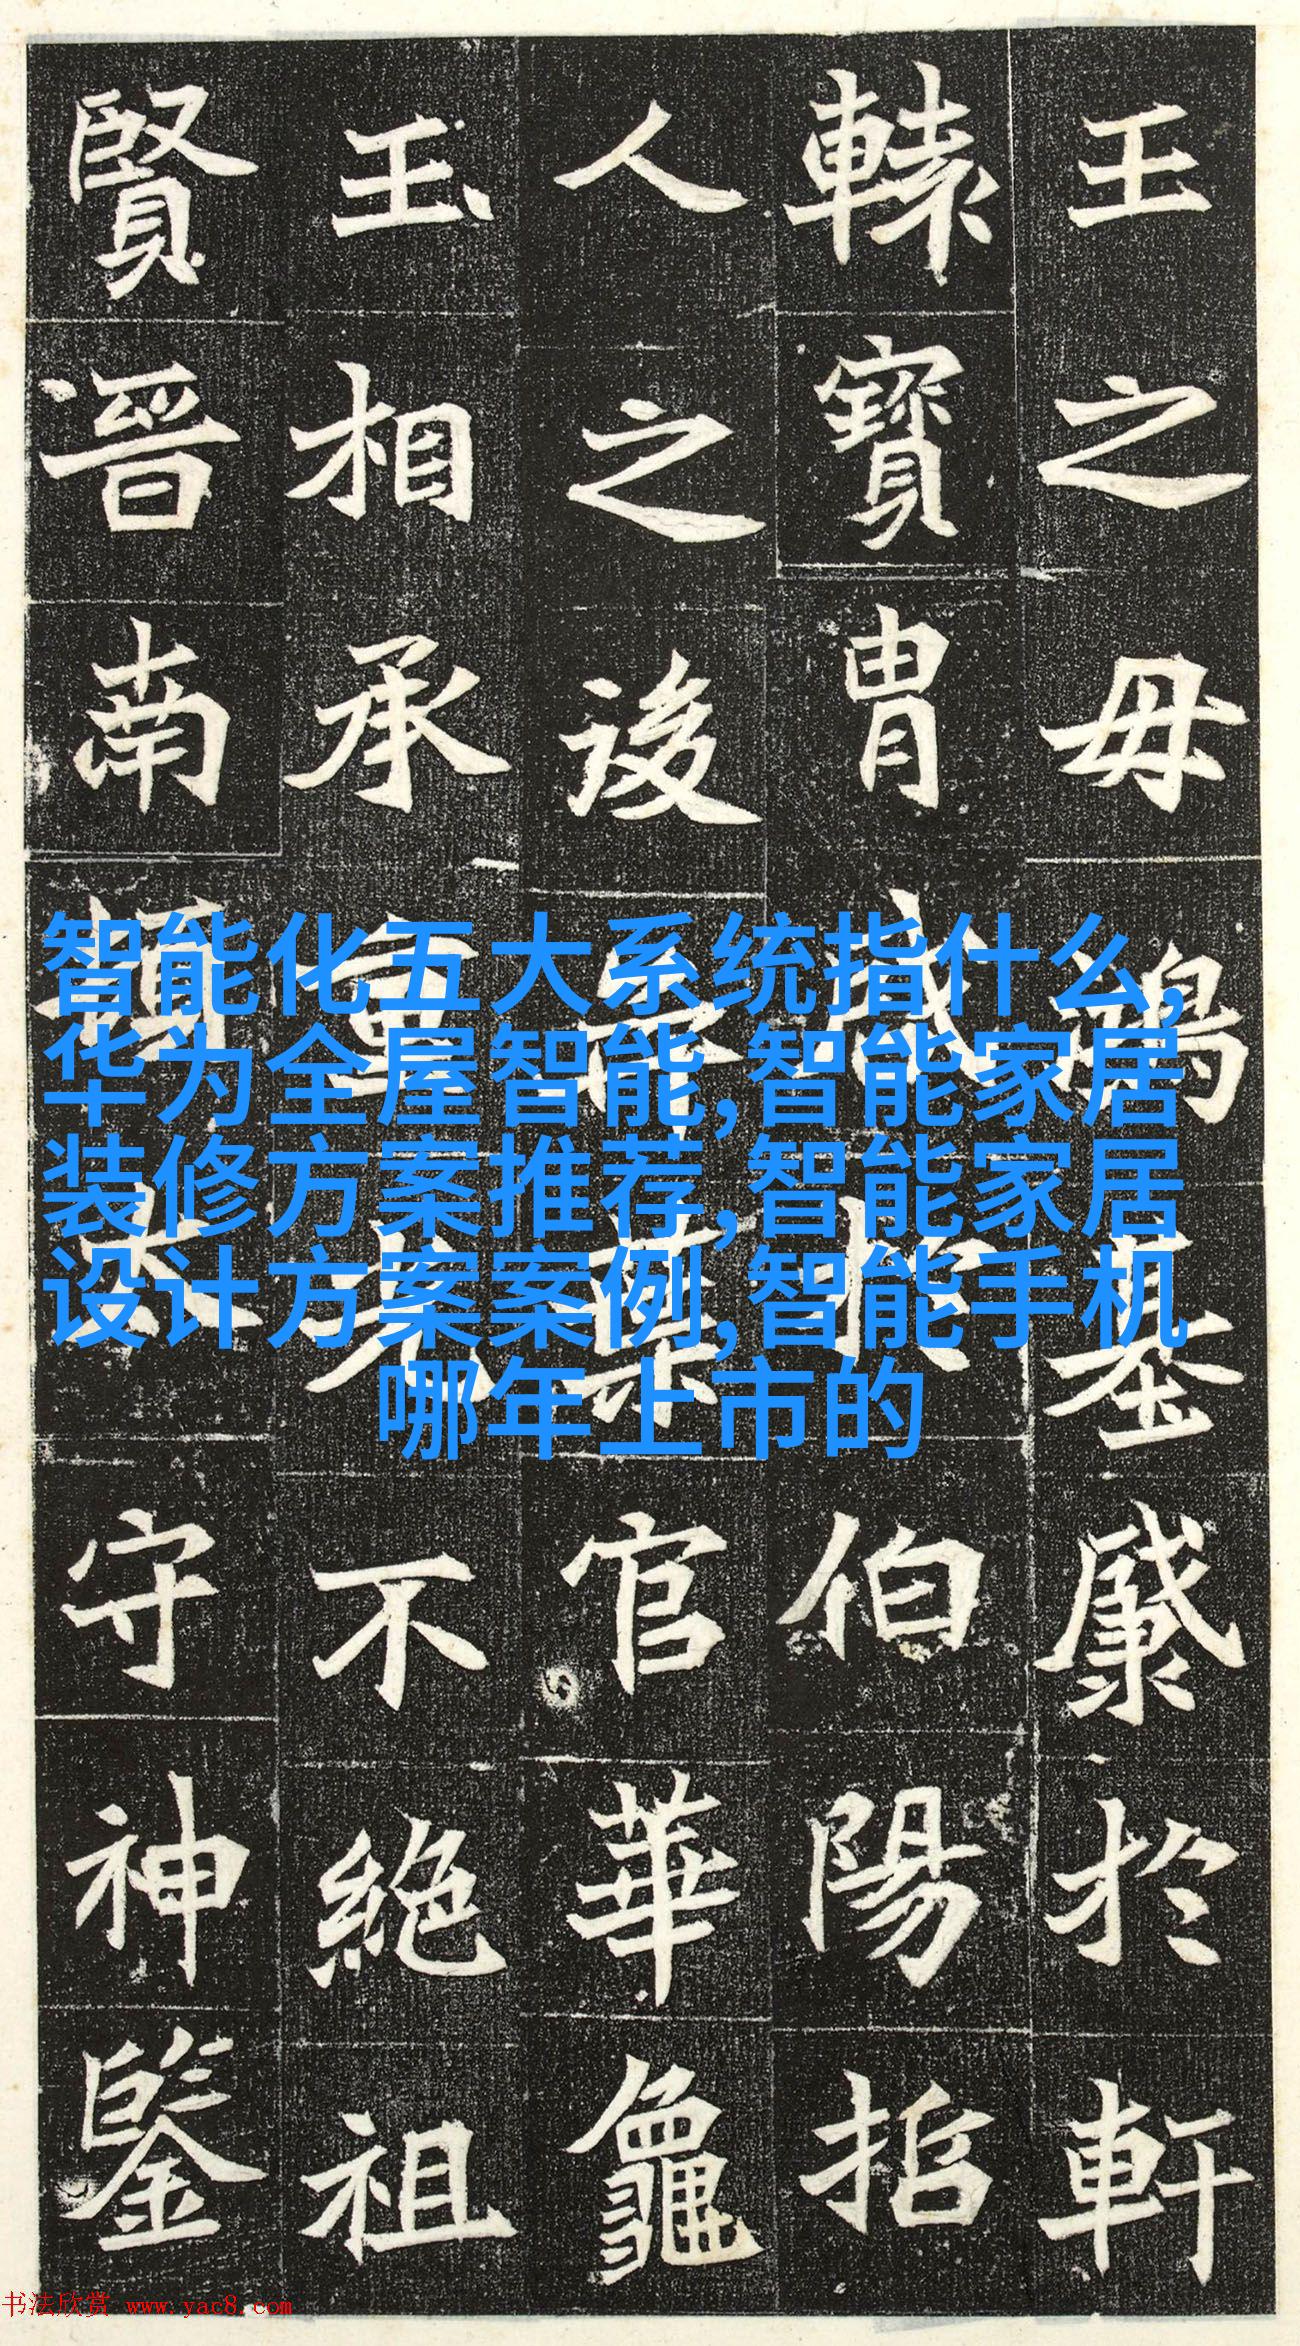 王之母鴻基於軒
轅寶胄盛於伯陽
人之後官華龕
玉相承重光不絕祖
賢晉南頓太守神鑒
智能化五大系统指什么,
华为全屋智能,智能家居
装修方案推荐,智能家居
设计方案案例,智能手机
哪年上市的
书法欣赏 www.yac8.com